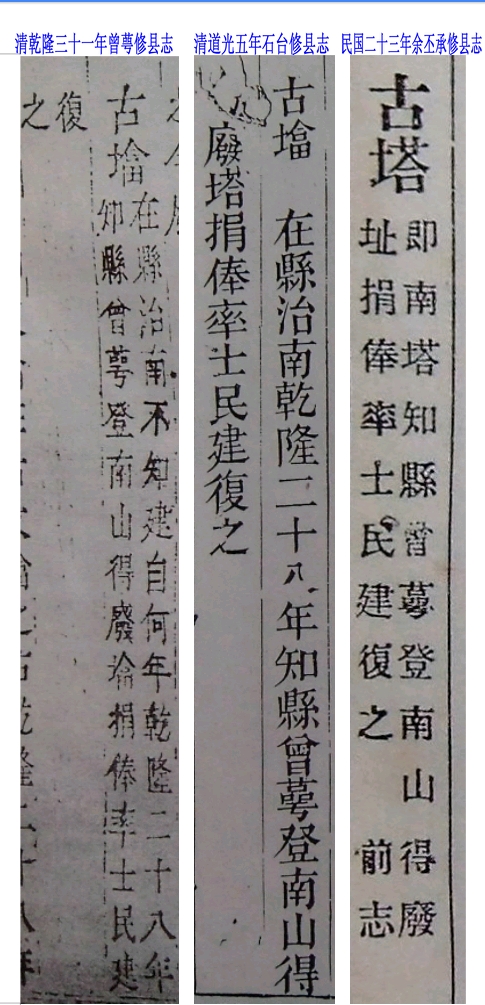 清乾隆三十一年曾萼修县志
清道光五年石台修县志
民国二十三年余丕承修县志
古墖
在縣治南不知建自何年乾隆二十八年
知縣曾蕚登南山得廢墖捐俸率士民建
復之
古墖 在縣治南乾隆二十八年知縣曾蕚登南山得
廢塔捐俸率士民建復之
古塔
即南塔知縣曾蕚登南山得廢
址捐俸率士民建復之 前志